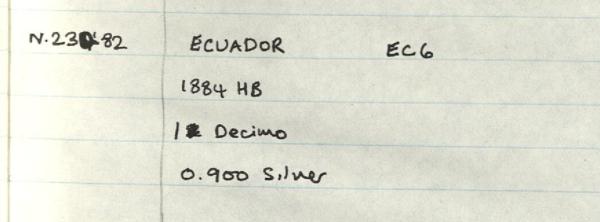 N.23 82 ECUADOR EC6
1884 HB
1 Decimo
0.900 Silver